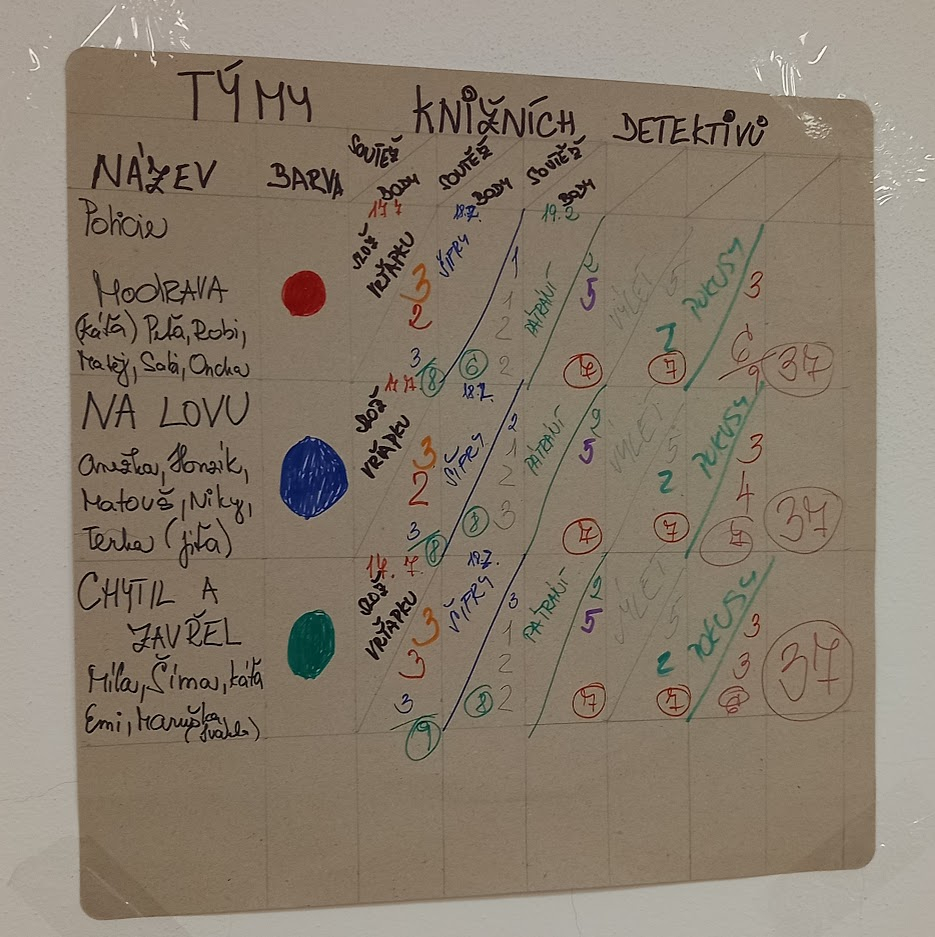 TÝMY KNIŽNÍCH DETEKTIVŮ
NÁZEV BARVA SOUTĚŽ BODY SOUTĚŽ BODY SOUTĚŽ BODY
Policie 17.7 18.7. 19.2
MODRAVA
(Káťa) Peťa, Robi,
Matěj, Sabi, Ondra
VRŤAPKU 3 2 3 8
ŠIFRY 1 1 2 2 6
PÁTRÁNÍ 2 5 7
VÝLET 5 2 7
POKUSY 3 6 9
37
NA LOVU 17.7 18.7.
Anežka, Honzík,
Matouš, Niky,
Terka (Jiťa)
VRŤAPKU 3 2 3 8
ŠIFRY 2 1 2 3 8
PÁTRÁNÍ 2 5 7
VÝLET 5 2 7
POKUSY 3 4 7
37
CHYTIL A 17.7
ZAVŘEL
Míla, Šíma, Káťa
Emi, Maruška
VRŤAPKU 3 3 3 9
ŠIFRY 3 1 2 2 8
PÁTRÁNÍ 2 5 7
VÝLET 5 2 7
POKUSY 3 3 6
37